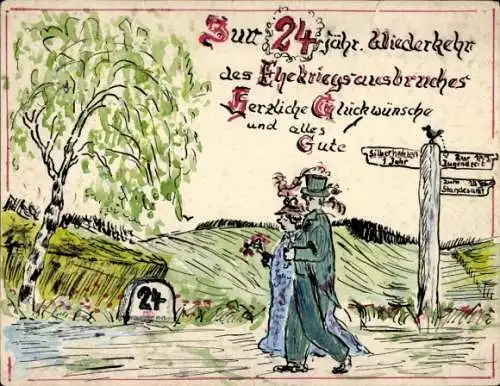 Zur 24 jähr. Wiederkehr
des Ehekriegsausbruches
Herzliche Glückwünsche
und alles
Gute
Silberhochzeit
1 Jahr
Zur
Jugendzeit
Zum
Standesamt
24